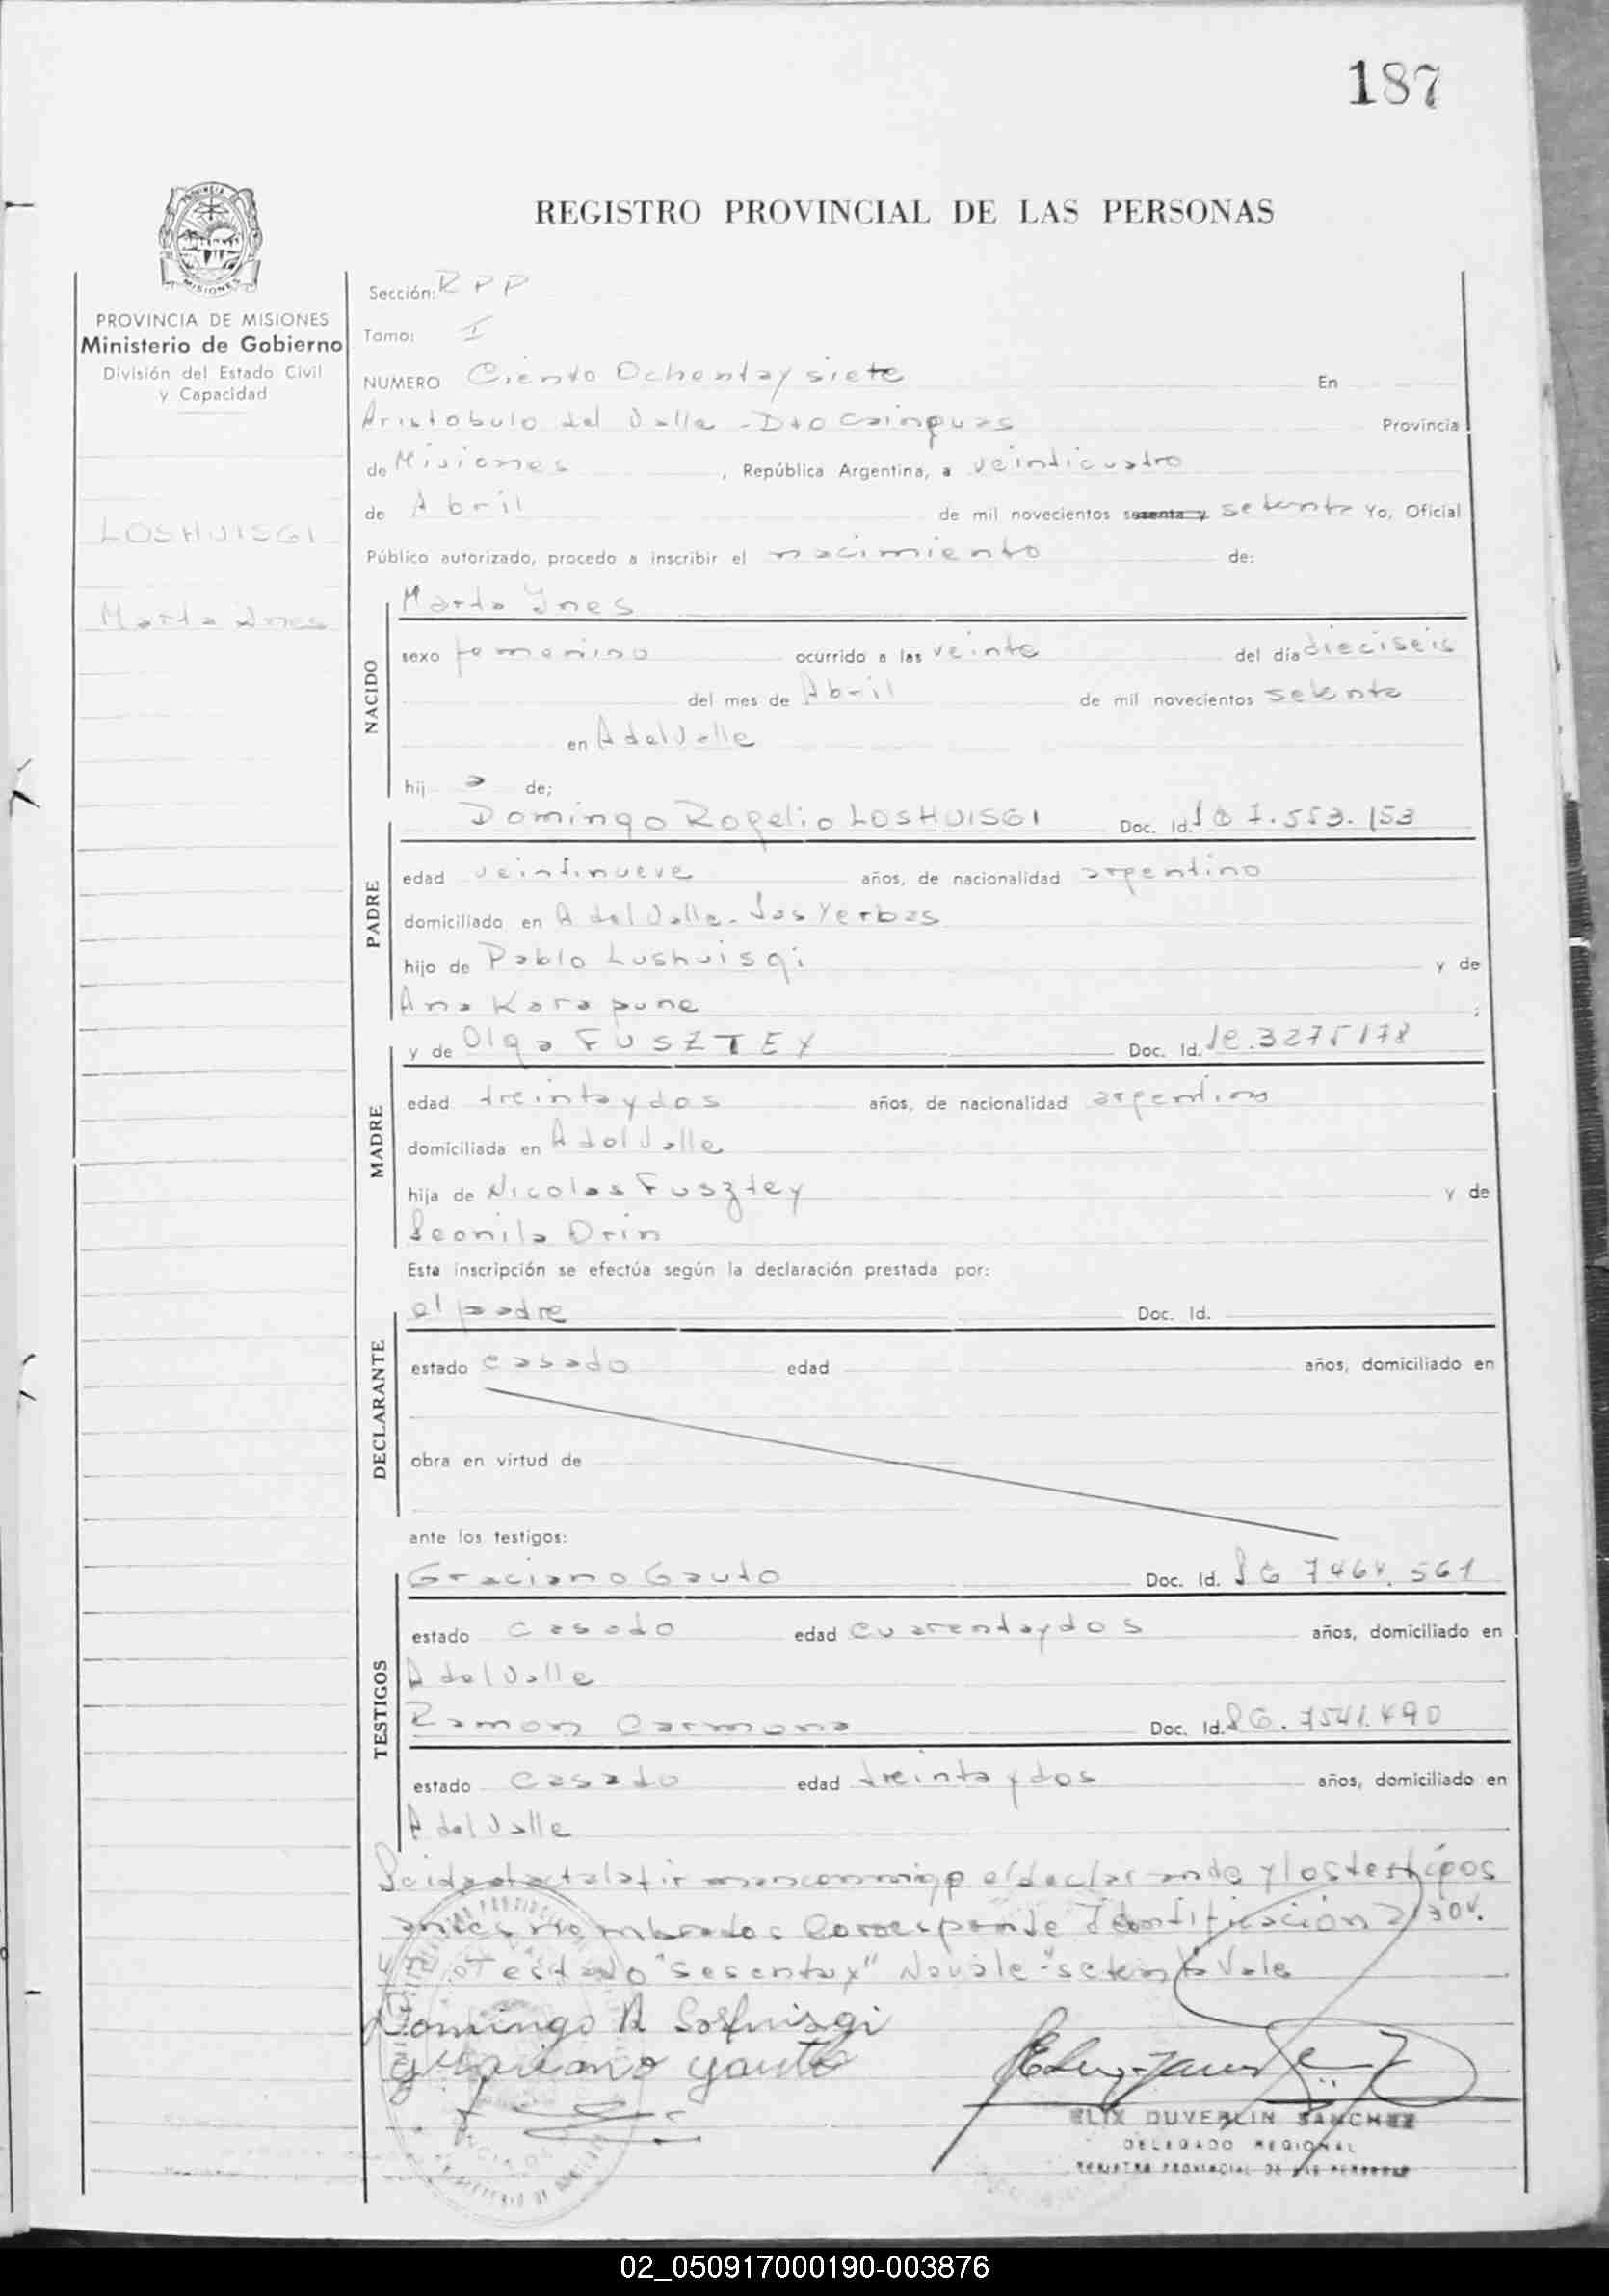 187
REGISTRO PROVINCIAL DE LAS PERSONAS
PROVINCIA DE MISIONES
Ministerio de Gobierno
División del Estado Civil
y Capacidad
LOSHUISGI
Marta Ines
Sección: RPP
Tomo: I
NUMERO Ciento Ochenta y siete En
Aristobulo del Valle - Dto Cainguas Provincia
de Misiones, República Argentina, a veinticuatro
de Abril de mil novecientos sesenta y setenta Yo, Oficial
Público autorizado, procedo a inscribir el nacimiento de:
NACIDO
Marta Ines
sexo femenino ocurrido a las veinte del día dieciseis
del mes de Abril de mil novecientos setenta
en A del Valle
hij a de;
PADRE
Domingo Rogelio LOSHUISGI Doc. Id. 7.553.153
edad veintinueve años, de nacionalidad argentino
domiciliado en A del Valle - Las Yerbas
hijo de Pablo Lushuisgi y de
Ana Kara pune ;
MADRE
y de Olga FUSZTEY Doc. Id. lc. 3275178
edad treinta y dos años, de nacionalidad argentina
domiciliada en A del Valle
hija de Nicolas Fusztey y de
Leonila Orin
Esta inscripción se efectúa según la declaración prestada por:
DECLARANTE
el padre Doc. Id.
estado casado edad años, domiciliado en
obra en virtud de
ante los testigos:
TESTIGOS
Graciano Gauto Doc. Id. 7464.561
estado casado edad cuarenta y dos años, domiciliado en
A del Valle
Ramon Carmona Doc. Id. 7541.490
estado casado edad treinta y dos años, domiciliado en
A del Valle
Leida el acta la firman conmigo el declarante y los testigos
antes nombrados Corresponde Identificación
Testado "sesenta y" No vale - "setenta" Vale
Domingo R Loshuisgi
Graciano Gauto
ELIX DUVERLIN SANCHEZ
DELEGADO REGIONAL
REGISTRO PROVINCIAL DE LAS PERSONAS
02_050917000190-003876